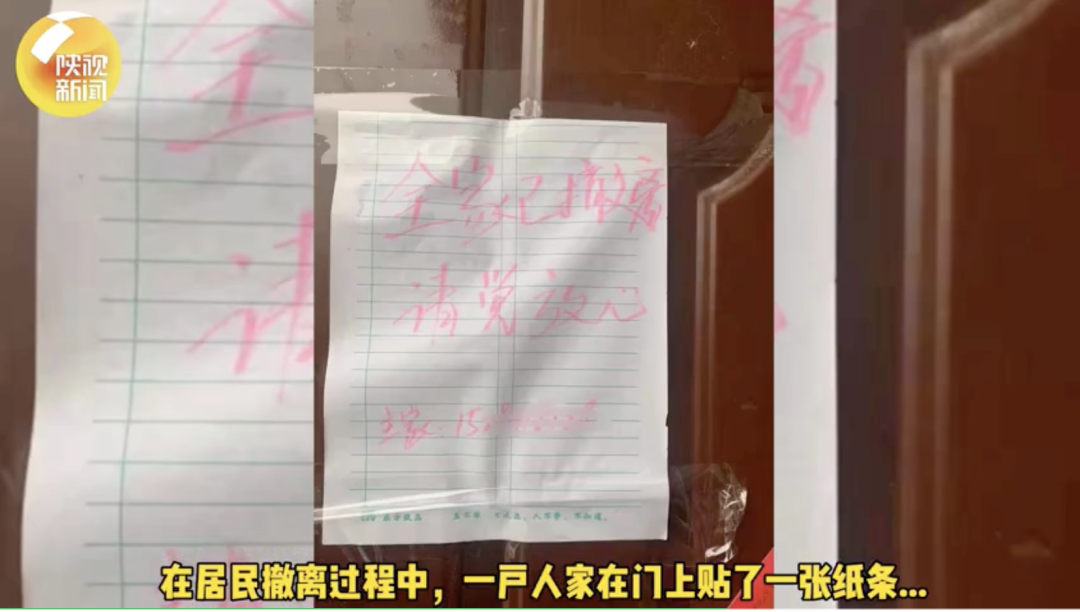 陕视
新闻
全家已撤离
请党放心
主家 15
在居民撤离过程中，一户人家在门上贴了一张纸条...